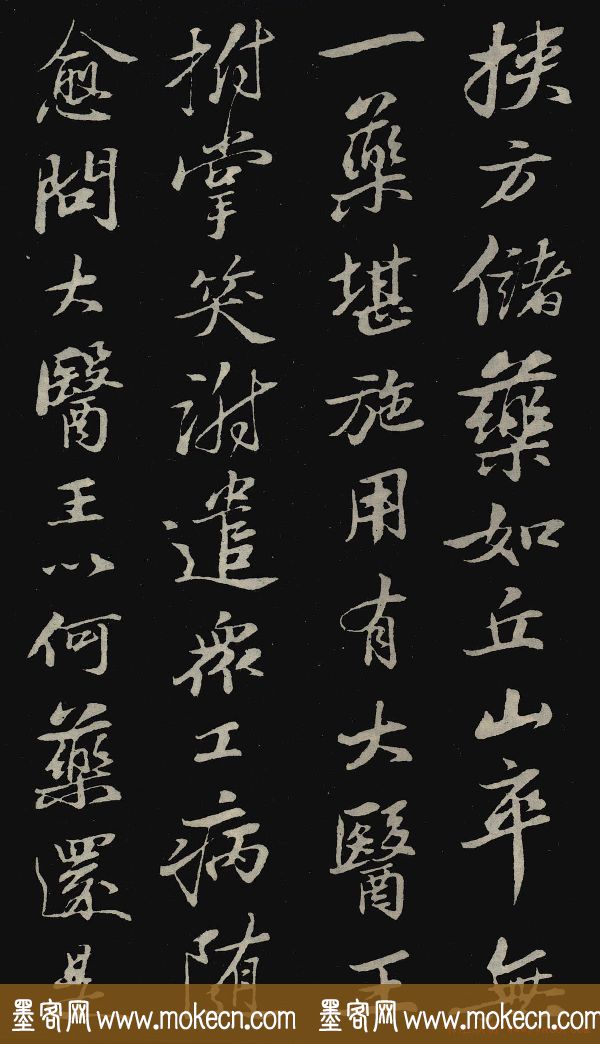 挾方儲藥如丘山卒無
一藥堪施用有大醫王
拊掌笑謝遣衆工病随
愈問大醫王以何藥還是
墨客网 www.mokecn.com 墨客网 www.mokecn.com